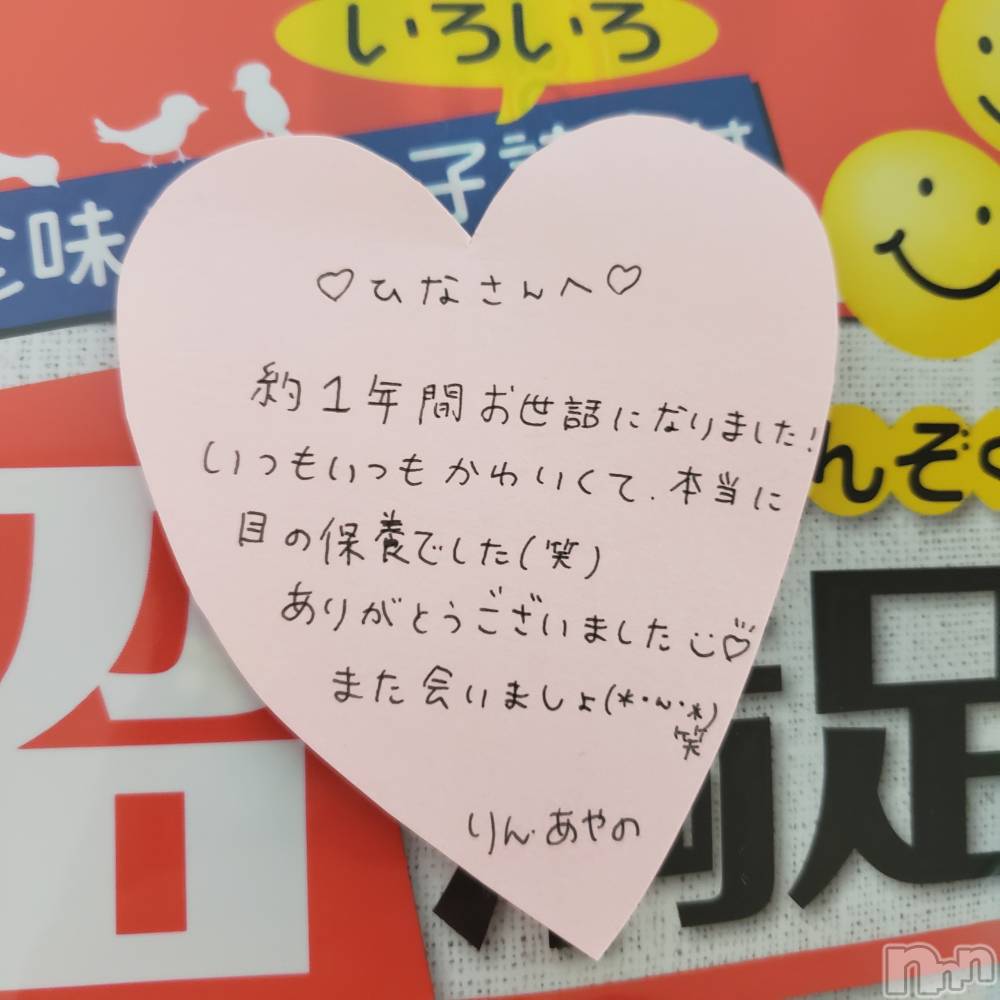 いろいろ
味
子
♡ひなさんへ♡
約1年間お世話になりました!
いつもいつもかわいくて、本当に
目の保養でした(笑)
ありがとうございました
また会いましょ(*・ω・*)
笑
りん。あやの
んぞ
足
nnn